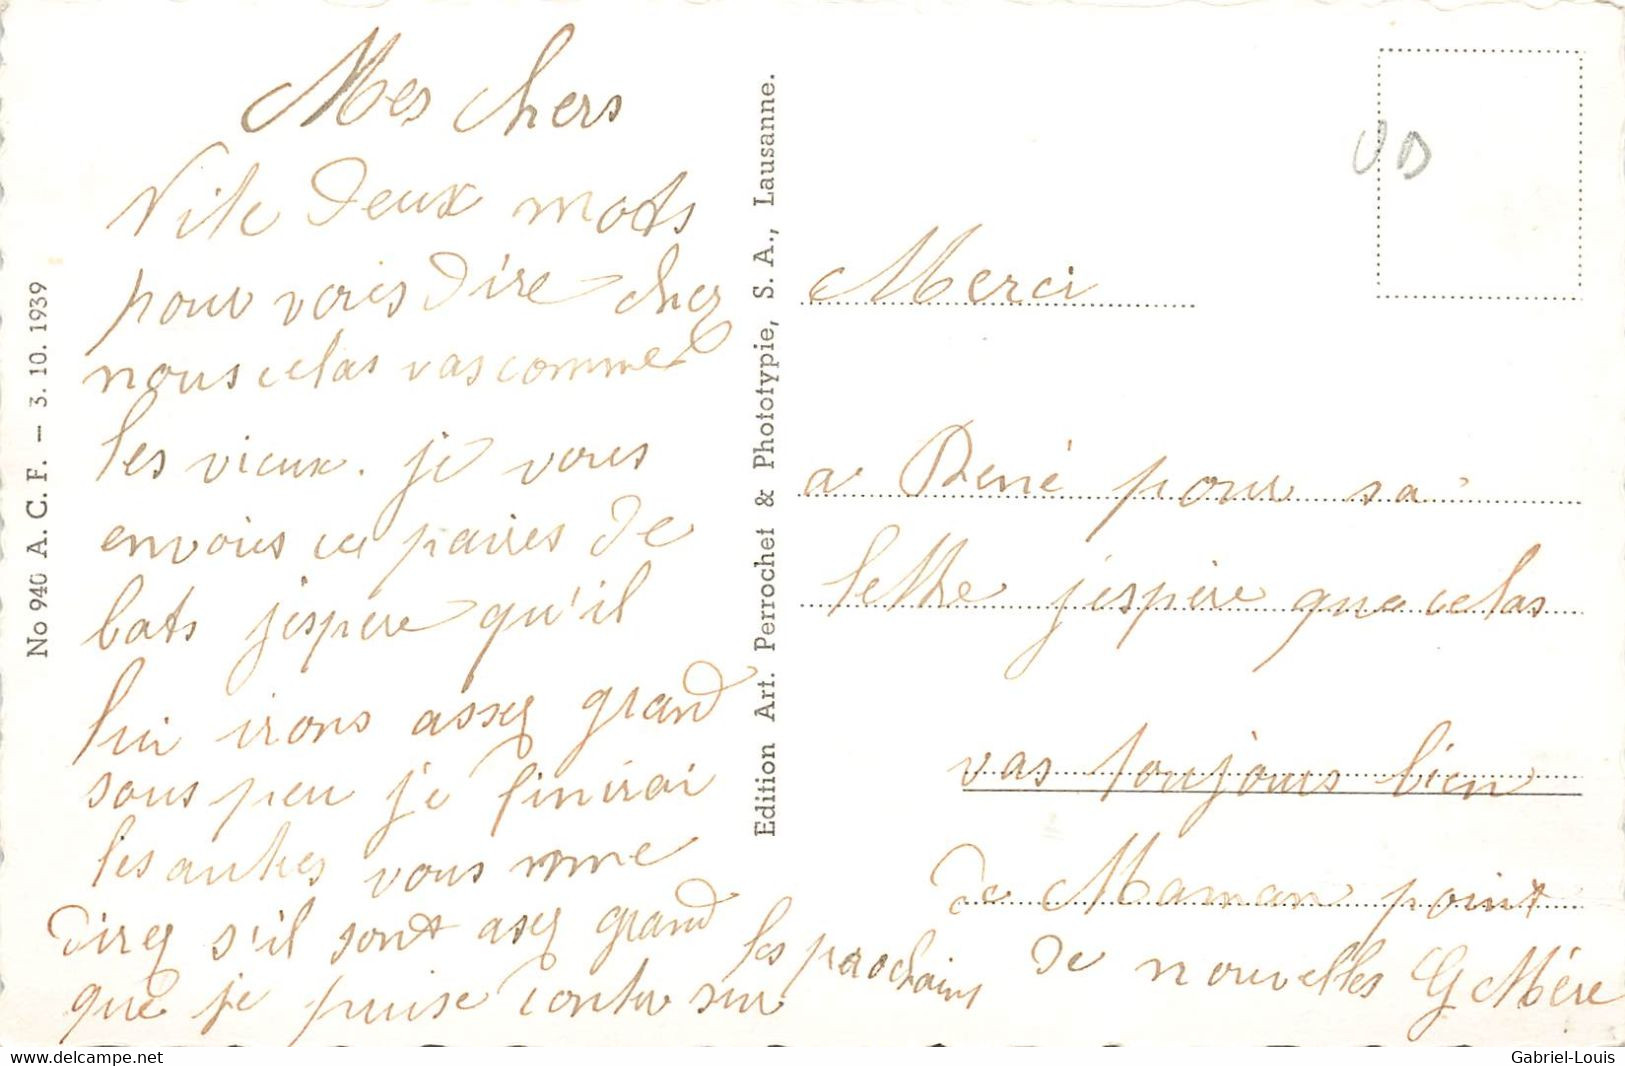 Mes chers
Vite deux mots
pour vous dire chez
nous celas vas comme
les vieux. je vous
envois ce paires de
bats j'espere qu'il
lui irons assez grand
sous peu je finirai
les autres vous mme
direz s'il sont asez grand
que je puise contu sur
les prochains
No 940 A. C. F. – 3. 10. 1939
Edition Art. Perrochet & Phototypie, S. A., Lausanne.
VD
Merci
a René pour sa
lettre j'espère que celas
vas toujours bien
de Maman point
de nouvelles G Mère
Gabriel-Louis
www.delcampe.net